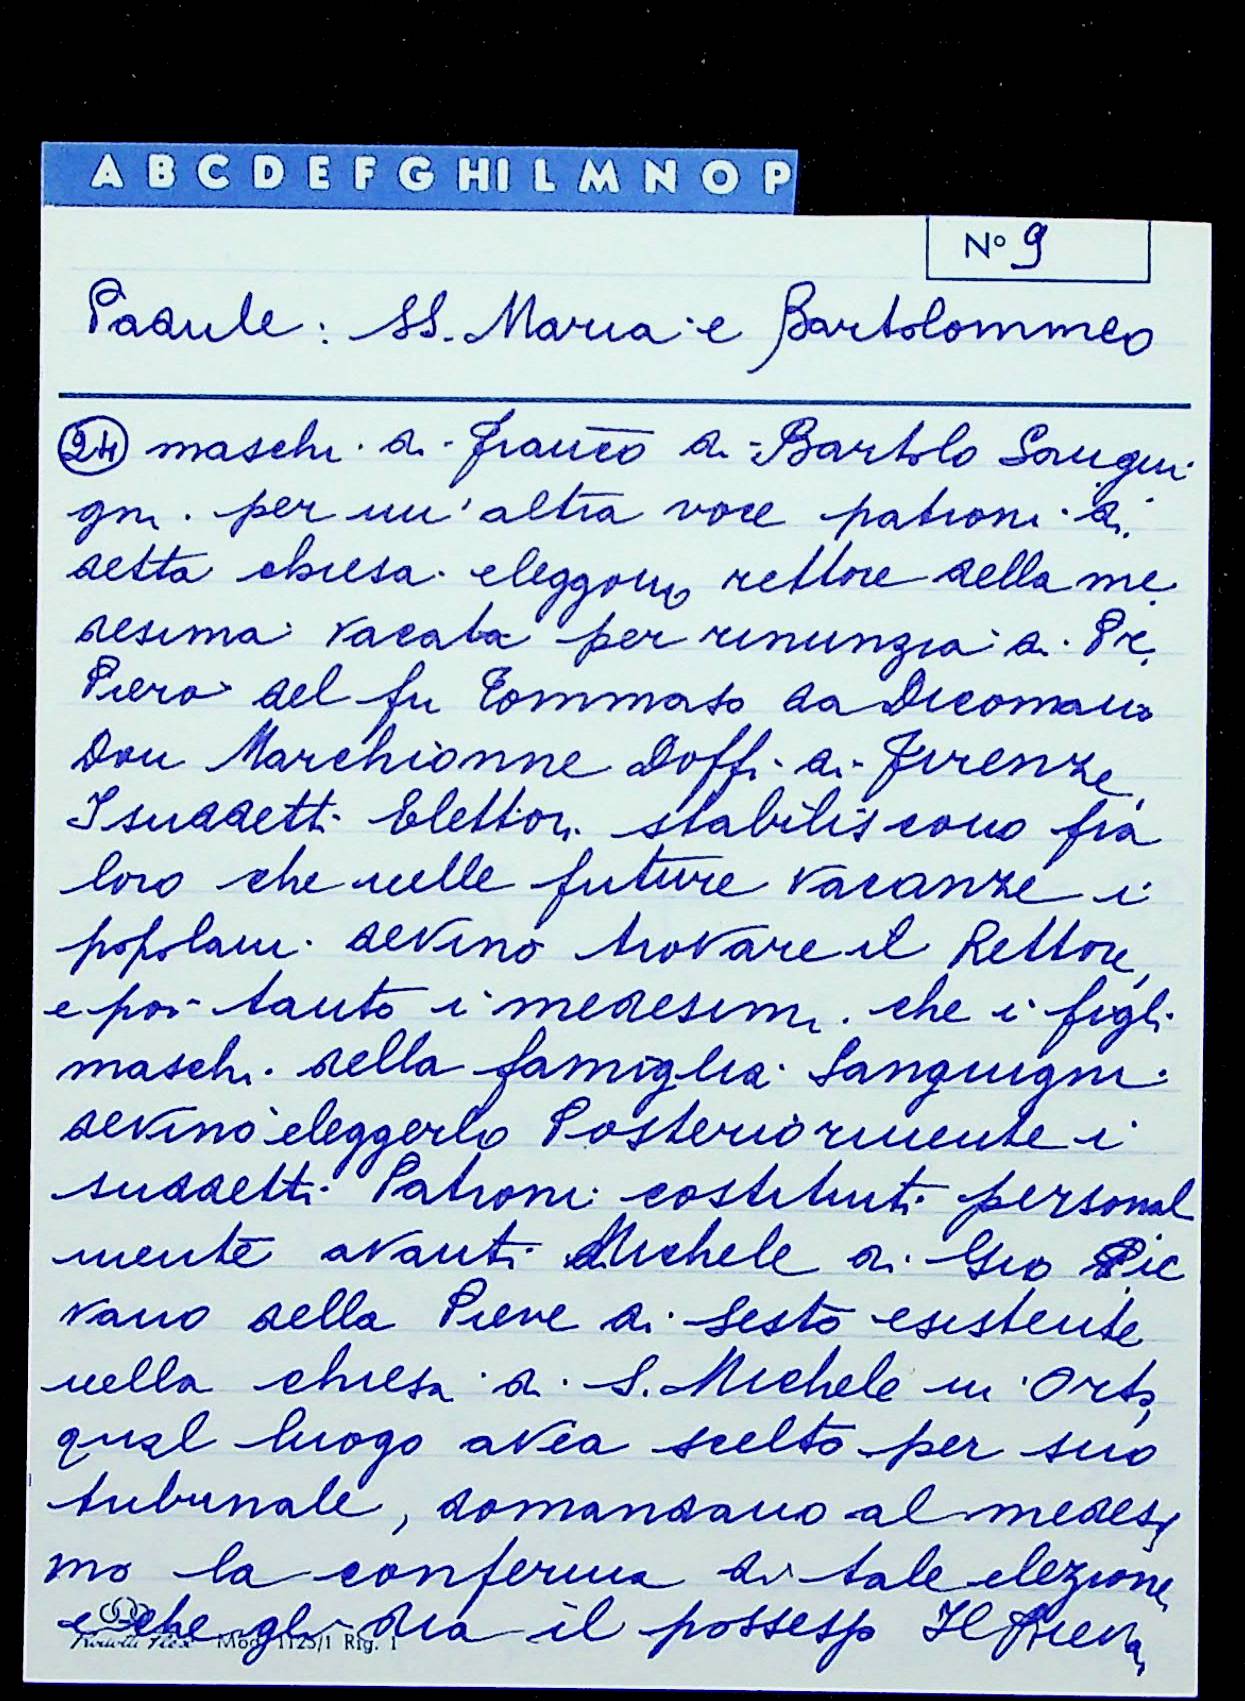 A B C D E F G H I L M N O P
N° 9
Padule: SS. Maria e Bartolommeo
24 maschi di Franco di Bartolo Sangui
gni per un'altra voce patroni di
detta chiesa eleggono rettore della me
desima vacata per rinunzia di Pre
Piero del fu Tommaso da Dicomano
Don Marchionne Doffi di Firenze
I suddetti Elettori stabiliscono fra
loro che nelle future vacanze i
popolani devino trovare il Rettore,
e poi tanto i medesimi che i figli
maschi della famiglia Sanguigni
devino eleggerlo Posteriormente i
suddetti Patroni costituiti personal
mente avanti Michele di Gio Pie
vano della Pieve di Sesto esistente
nella chiesa di S. Michele in Orto,
qual luogo avea scelto per suo
tribunale, domandano al medesi
mo la conferma di tale elezione
e che gli dia il possesso Il Pieva,
Mod. 1125/1 Rig. 1